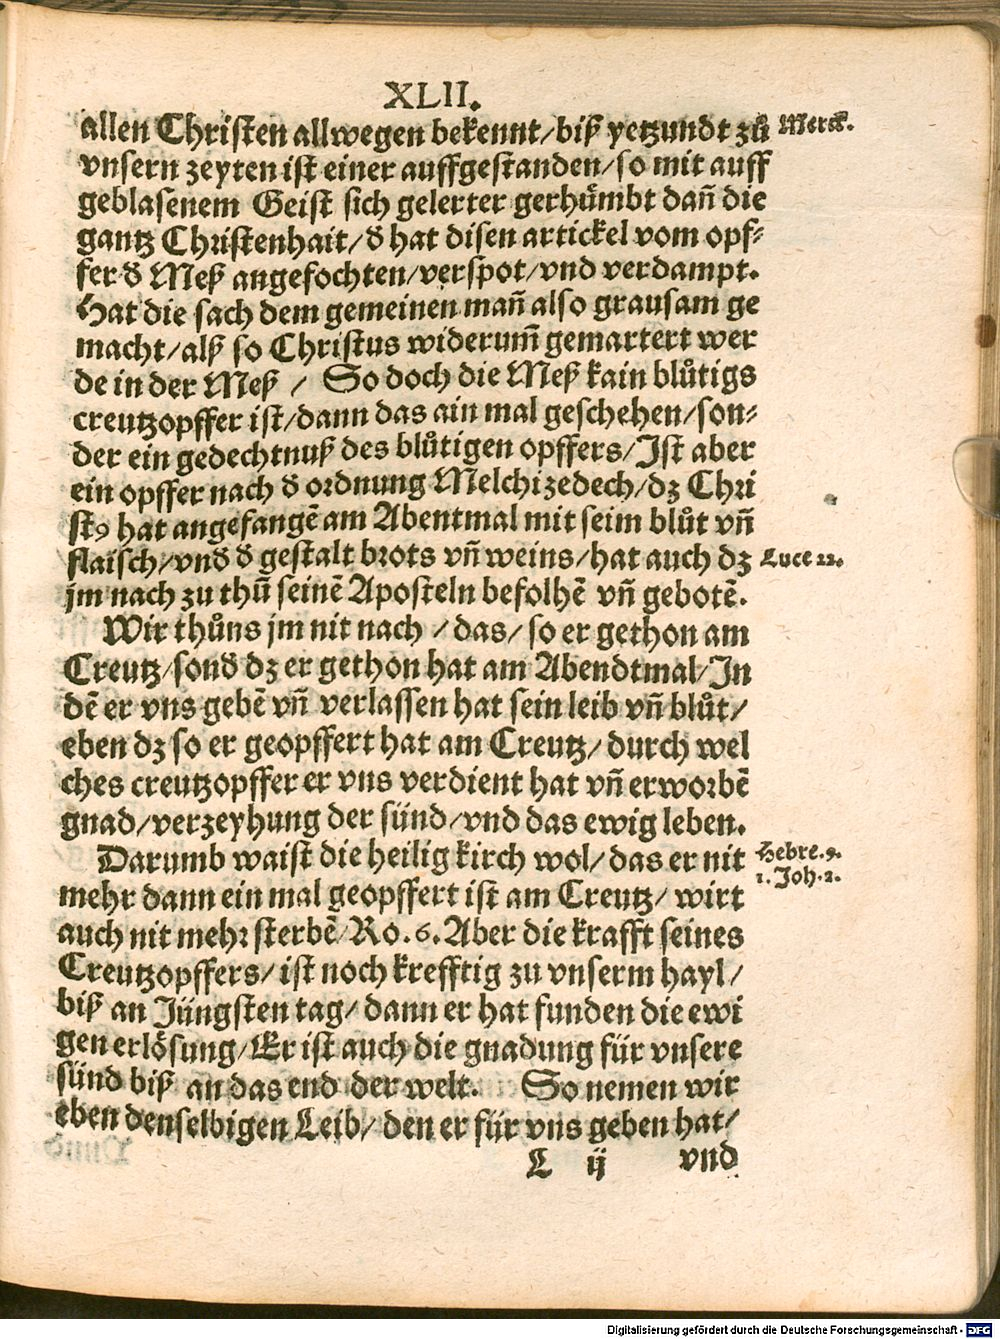 XLII.
allen Christen allwegen bekennt/biß yetzundt zů Merck.
vnsern zeyten ist einer auffgestanden/so mit auff
geblasenem Geist sich gelerter gerhuͤmbt dañ die
gantz Christenhait/d̕ hat disen artickel vom opf⸗
fer d̕ Meß angefochten/verspot/vnd verdampt.
Hat die sach dem gemeinen mañ also grausam ge
macht/alß so Christus widerum̃ gemartert wer
de in der Meß / So doch die Meß kain blůtigs
creutzopffer ist/dann das ain mal geschehen/son⸗
der ein gedechtnuß des blůtigen opffers/Ist aber
ein opffer nach d̕ ordnung Melchizedech/dz Chri
stꝰ hat angefangẽ am Abentmal mit seim blůt vñ
flaisch/vnd d̕ gestalt brots vñ weins/hat auch dz Luce 22.
jm nach zu thũ seinẽ Aposteln befolhẽ vñ gebotẽ.
Wir thůns jm nit nach /das/ so er gethon am
Creutz/sond̕ dz er gethon hat am Abendtmal/In
dẽ er vns gebẽ vñ verlassen hat sein leib vñ blůt/
eben dz so er geopffert hat am Creutz/durch wel
ches creutzopffer er vns verdient hat vñ erworbẽ
gnad/verzeyhung der sünd/vnd das ewig leben.
Darumb waist die heilig kirch wol/das er nit Hebre.9.
mehr dann ein mal geopffert ist am Creutz/ wirt 1. Joh.2.
auch nit mehr sterbẽ/Ro.6.Aber die krafft seines
Creutzopffers/ist noch krefftig zu vnserm hayl/
biß an Jüngsten tag/dann er hat funden die ewi
gen erlösung/Er ist auch die gnadung für vnsere
sünd biß an das end der welt. So nemen wir
eben denselbigen Leib/den er für vns geben hat/
L ij vnd
Digitalisierung gefördert durch die Deutsche Forschungsgemeinschaft - DFG